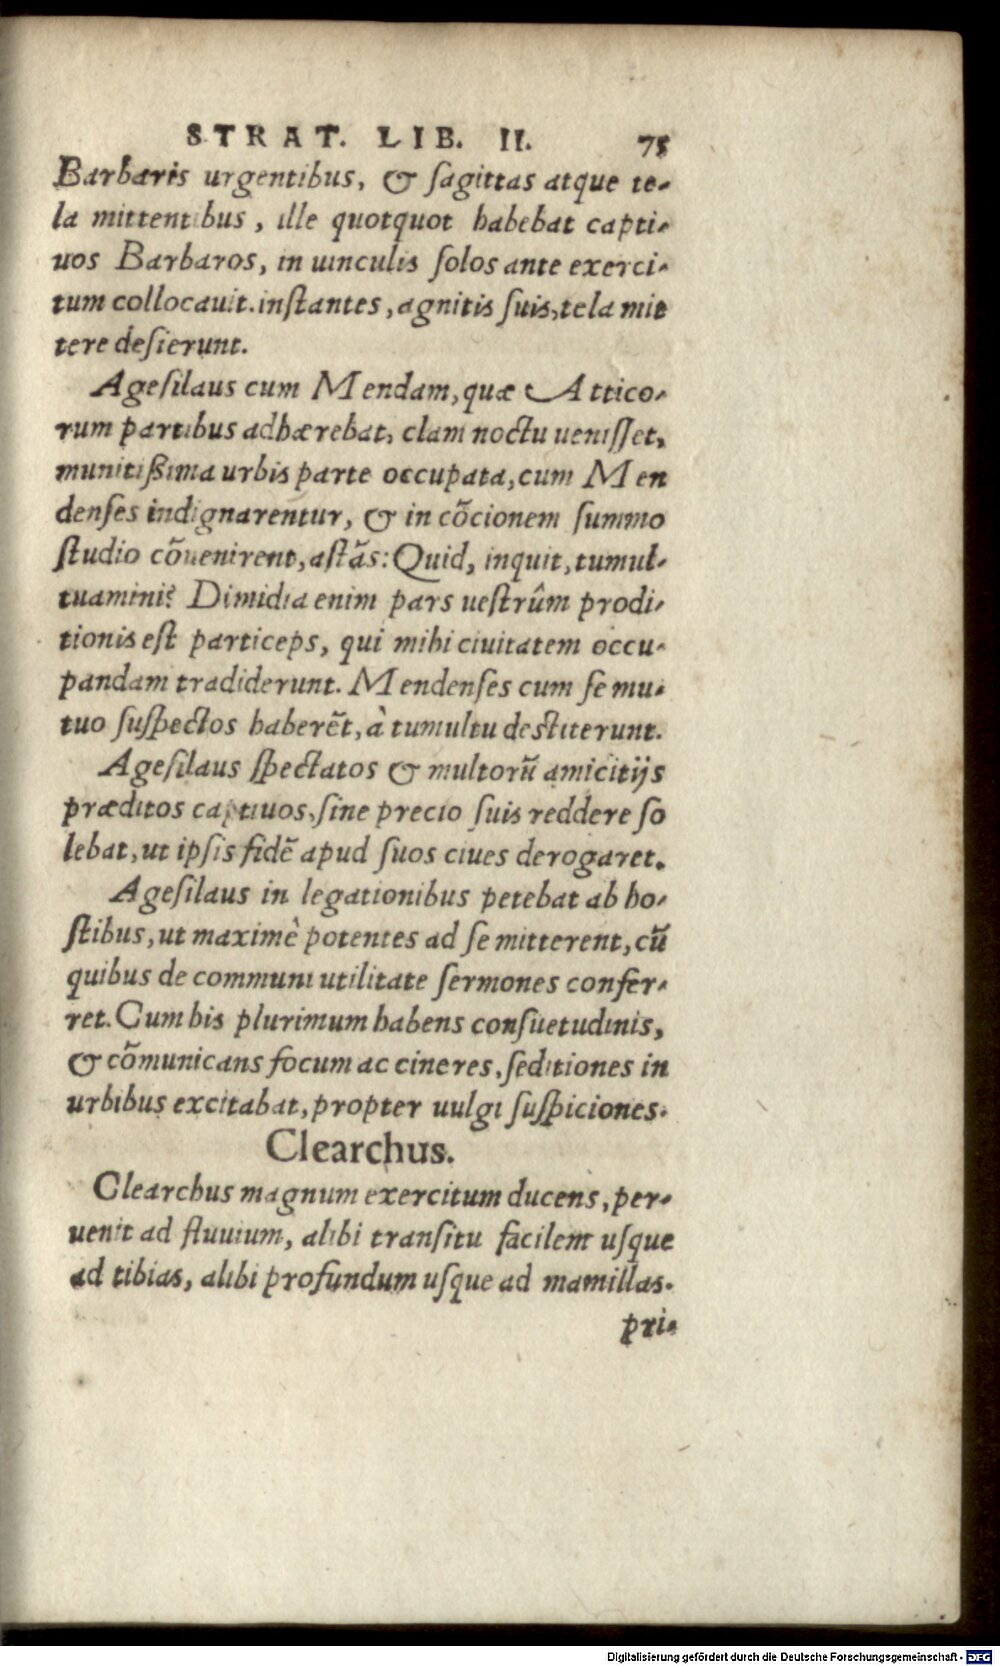 STRAT. LIB. II. 75
Barbaris urgentibus, & ſagittas atque te-
la mittentibus, ille quotquot habebat capti-
uos Barbaros, in uinculis ſolos ante exerci-
tum collocauit. inſtantes, agnitis ſuis, tela mit
tere deſierunt.
Ageſilaus cum Mendam, quæ Attico-
rum partibus adhærebat, clam noctu ueniſſet,
munitißima urbis parte occupata, cum Men
denſes indignarentur, & in cōcionem ſummo
ſtudio cōuenirent, aſtās: Quid, inquit, tumul-
tuamini? Dimidia enim pars ueſtrûm prodi-
tionis eſt particeps, qui mihi ciuitatem occu-
pandam tradiderunt. Mendenſes cum ſe mu-
tuo ſuſpectos haberēt, à tumultu deſtiterunt.
Ageſilaus ſpectatos & multorū amicitijs
præditos captiuos, ſine precio ſuis reddere ſo
lebat, ut ipſis fidē apud ſuos ciues derogaret.
Ageſilaus in legationibus petebat ab ho-
ſtibus, ut maximè potentes ad ſe mitterent, cū
quibus de communi utilitate ſermones confer-
ret. Cum his plurimum habens conſuetudinis,
& cōmunicans focum ac cineres, ſeditiones in
urbibus excitabat, propter uulgi ſuſpiciones.
Clearchus.
Clearchus magnum exercitum ducens, per-
uenit ad fluuium, alibi tranſitu facilem uſque
ad tibias, alibi profundum uſque ad mamillas.
pri-
Digitalisierung gefördert durch die Deutsche Forschungsgemeinschaft - DFG